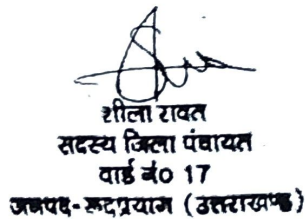 शीला रावत
सदस्य जिला पंचायत
वार्ड नं0 17
जनपद-रूद्रप्रयाग (उत्तराखण्ड)